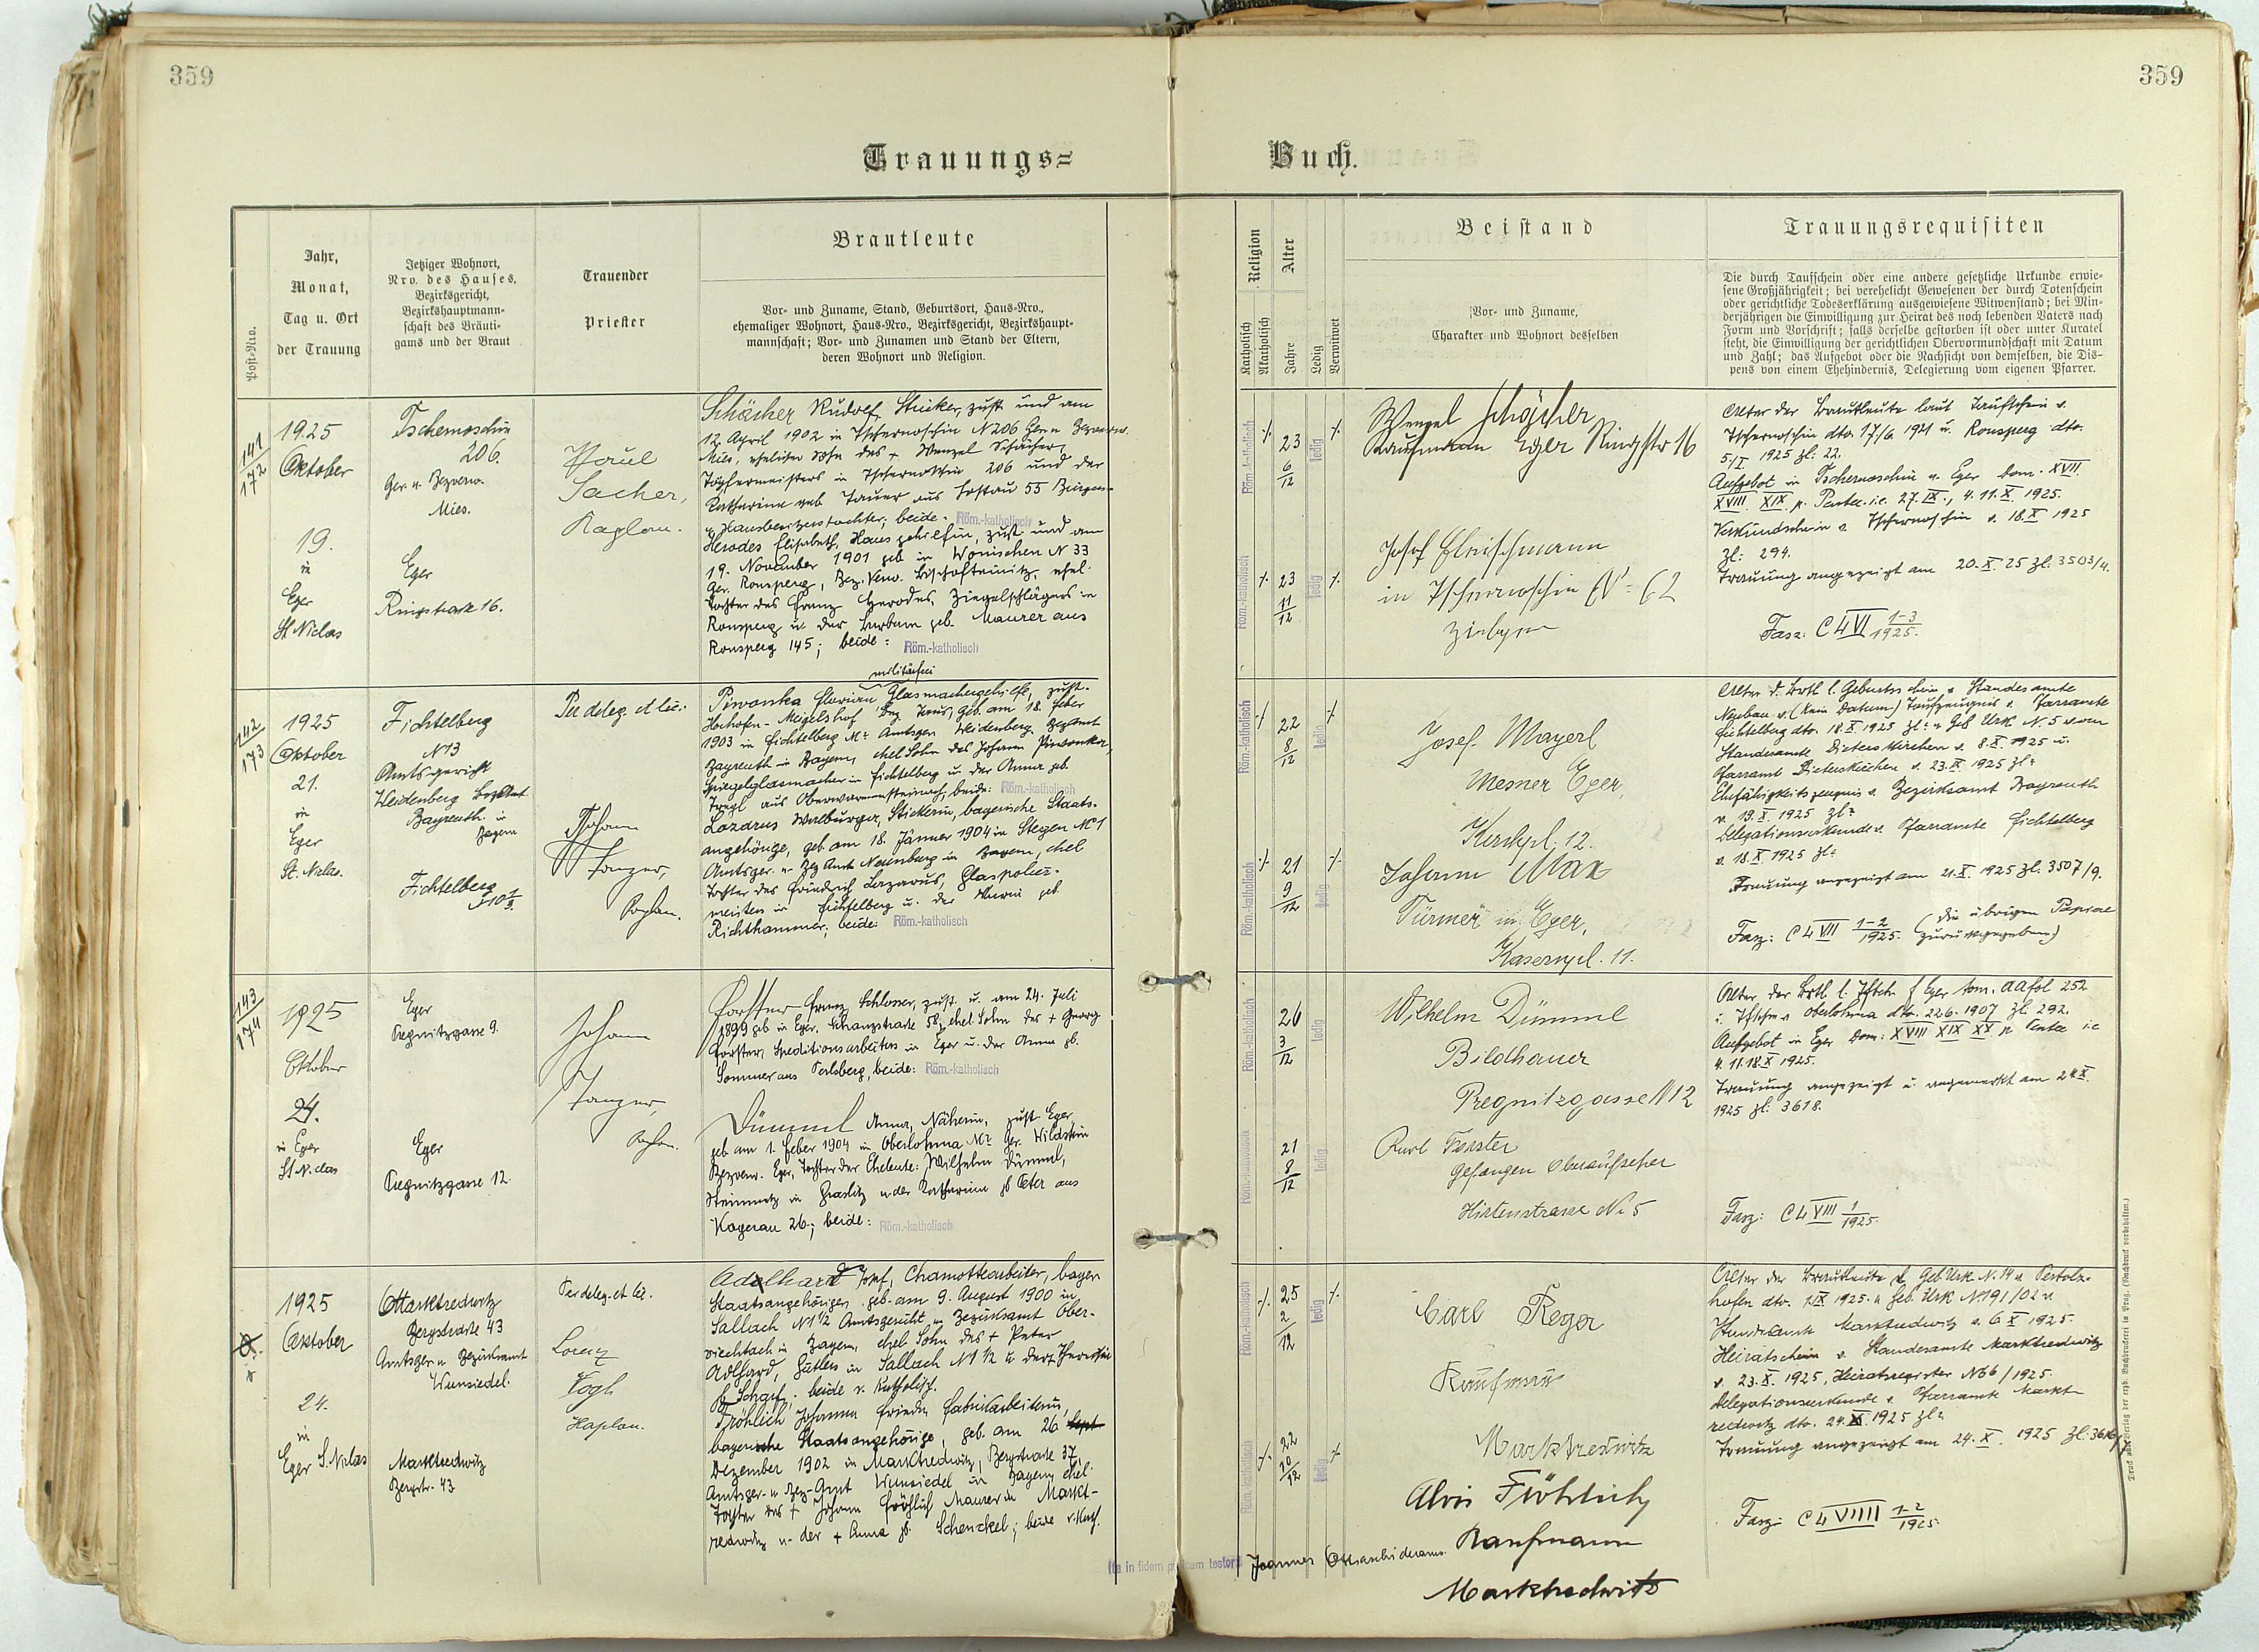 359
Trauungs=
Post-Nro.
Jahr,
Monat,
Tag u. Ort
der Trauung
Jetziger Wohnort,
Nro. des Hauses,
Bezirksgericht,
Bezirkshauptmann-
schaft des Bräuti-
gams und der Braut
Trauender
Priester
Brautleute
Vor- und Zuname, Stand, Geburtsort, Haus-Nro.,
ehemaliger Wohnort, Haus-Nro., Bezirksgericht, Bezirkshaupt-
mannschaft; Vor- und Zunamen und Stand der Eltern,
deren Wohnort und Religion.
141
172
1925
Oktober
19.
in
Eger
St Niclas
Tschernoschin
206.
Ger. u. Bezverw.
Mies.
Eger
Ringstrasse 16.
Karl
Sacher,
Kaplan.
Schächer Rudolf, zust und am
12. April 1902 in Tschernoschin N 206
Mies, ehelicher Sohn des + Wenzel Schächer,
Töpfermeisters in Tschernoschin 206 und der
Katharina geb Tauer aus Hostau 55 Bürgers-
u Hausbesitzerstochter; beide: Röm.-katholisch
Herodes Elisabeth, Hausgehilfin, zust und am
19. November 1901 geb in Wonischen N 33
Ger. Ronsperg, Bez. Verw. Bischofteinitz, ehel.
Tochter des Franz Herodes, Ziegelschlägers in
Ronsperg u. der Barbara geb. Maurer aus
Ronsperg 145; beide: Röm.-katholisch
142
173
1925
Oktober
21.
in
Eger
St. Niclas.
Fichtelberg
N 13
Amtsgericht
Weidenberg BezAmt
Bayreuth in
Bayern
Fichtelberg
Per deleg. et lic.:
Johann
Tanzer,
Kaplan.
militärfrei
Piwonka Florian, Glasmachergehilfe, zust.
1903 in Fichtelberg Nr Amtsger. Weidenberg BezAmt
Bayreuth in Bayern, ehel Sohn des Johann Piwonka,
Spiegelglasmacher in Fichtelberg u. der Anna geb.
Tragl aus Oberwarmensteinach, beide: Röm.-katholisch
Lazarus Walburga, Stickerin, bayerische Staats-
angehörige, geb. am 18. Jänner 1904 in Stegen N 1
Amtsger. u. Bez Amt Neunburg in Bayern, ehel
Tochter des Friedrich Lazarus, Glaspolier-
meisters in Fichtelberg u. der Maria geb
Richthammer; beide: Röm.-katholisch
143
174
1925
Oktober
24.
in Eger
St Niclas
Eger
Pregnitzgasse 9.
Eger
Pregnitzgasse 12.
Johann
Tanzer,
Kaplan.
Forster Franz Schlosser, zust. u. am 24. Juli
1899 geb in Eger, Schanzstrasse 58, ehel. Sohn des + Georg
Forster, Speditionsarbeiters in Eger u. der Anna gb.
Sommer aus Perlsberg, beide: Röm.-katholisch
Dümml Anna, Näherin, zust Eger,
geb am 1. Feber 1904 in Oberlohma Nr Ger. Wildstein
Bezverw. Eger, Tochter der Eheleute: Wilhelm Dümml,
Steinmetz in Graslitz u der Katharina gb Peter aus
Kagerau 26; beide: Röm.-katholisch
1925
Oktober
24.
in
Eger S. Niclas
Marktredwitz
Bergstrasse 43
Amtsger u Bezirksamt
Wunsiedel.
Marktredwitz
Bergstr. 43
Per deleg. et lic.
Lorenz
Vogl
Kaplan.
Adelhard Josef, Chamottearbeiter, bayer
Staatsangehöriger, geb. am 9. August 1900 in
Sallach N 1½ Amtsgericht u Bezirksamt Ober-
viechtach in Bayern, ehel. Sohn des + Peter
Adlhard, Gütlers in Sallach N 1½ u der Theresia
gb Scharf; beide r. katholisch.
Fröhlich Johanna Frieda Fabrikarbeiterin,
bayerische Staatsangehörige, geb. am 26. Sept
Dezember 1902 in Marktredwitz, Bergstrasse 37,
Amtsger. u Bez-Amt Wunsiedel in Bayern, ehel.
Tochter des + Johann Fröhlich Maurer in Markt-
redwitz u. der + Anna gb. Schenckel; beide r. kath.
Ita in fidem publicam testor:
359
Buch.
Religion
Katholisch
Akatholisch
Alter
Jahre
Ledig
Verwitwet
Beistand
Vor- und Zuname,
Charakter und Wohnort desselben
Trauungsrequisiten
Die durch Taufschein oder eine andere gesetzliche Urkunde erwie-
sene Großjährigkeit; bei verehelicht Gewesenen der durch Totenschein
oder gerichtliche Todeserklärung ausgewiesene Witwenstand; bei Min-
derjährigen die Einwilligung zur Heirat des noch lebenden Vaters nach
Form und Vorschrift; falls derselbe gestorben ist oder unter Kuratel
steht, die Einwilligung der gerichtlichen Obervormundschaft mit Datum
und Zahl; das Aufgebot oder die Nachsicht von demselben, die Dis-
pens von einem Ehehindernis, Delegierung vom eigenen Pfarrer.
Röm.-katholisch
23
6
12
ledig
Röm.-katholisch
23
11
12
ledig
Wenzel Schächer
Kaufmann Eger Ringstr 16
Josef Fleischmann
in Tschernoschin N= 62
Alter der Brautleute laut Taufschein v.
Tschernoschin dto. 17/6. 1921 u. Ronsperg dto.
5/I 1925 zl: 22.
Aufgebot in Tschernoschin u. Eger Dom. XVII.
XVIII XIX p. Pentec. i.e. 27. IX., 4. 11. X. 1925.
Verkündschein v. Tschernoschin v. 18. X 1925
Zl: 294.
Trauung angezeigt am 20. X. 25 Zl. 3503/4.
Fasz: C 4 VI 1-3
1925.
Röm.-katholisch
22
8
12
ledig
Röm.-katholisch
21
9
12
ledig
Josef Mayerl
Mesner Eger,
Kirchpl. 12.
Johann Max
Türmer in Eger,
Kasernpl. 11.
Alter d. Brtl l. Geburtsschein v Standesamte
Neubau v. (kein Datum) Taufzeugnis v. Pfarramte
Fichtelberg dto. 18. X 1925 zl: u Geb Urk N. 5 vom
Standesamte Dieterskirchen v. 8. X 1925 u.
Pfarramt Dieterskirchen v. 23. IX 1925 zl:
Ehefähigkeitszeugnis v. Bezirksamt Bayreuth
v. 19. X. 1925 zl:
Delegationsurkunde v. Pfarramte Fichtelberg
v. 18. X 1925 zl:
Trauung angezeigt am 21. X. 1925 zl. 3507/9.
Fasz: C 4 VII 1-2
1925. (die übrigen Papiere
zurückgegeben)
Röm.-katholisch
26
3
12
ledig
Röm.-katholisch
21
8
12
ledig
Wilhelm Dümml
Bildhauer
Pregnitzgasse N 12
Karl Forster
Gefangen Oberaufseher
Hirtenstrasse No 5
Aufgebot in Eger Dom: XVIII XIX XX p Pentec i.e
4. 11. 18. X 1925.
Trauung angezeigt u. angemerkt am 24 X.
1925 zl: 3618.
Fasz: C 4 VIII 1
1925.
Röm.-katholisch
25
2
12
ledig
Röm.-katholisch
22
10
12
ledig
Carl Reger
Kaufmann
Marktredwitz
Alois Fröhlich
Kaufmann
Marktredwitz
hofen dto. 1. IX 1925. u Geb. Urk N 191/02 v.
Standesamt Marktredwitz v. 6 X 1925.
Heiratschein v. Standesamte Marktredwitz
v. 23. X. 1925, Heiratsregister N 66/1925.
Delegationsurkunde v. Pfarramte Markt-
redwitz dto. 24. X. 1925 zl:
Trauung angezeigt am 24. X. 1925
Fasz: C 4 VIIII 1-2
1925.